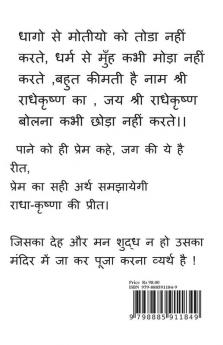 धागो से मोतीयो को तोडा नहीं
करते, धर्म से मुँह कभी मोड़ा नहीं
करते ,बहुत कीमती है नाम श्री
राधेकृष्ण का , जय श्री राधेकृष्ण
बोलना कभी छोड़ा नहीं करते।।
पाने को ही प्रेम कहे, जग की ये है
रीत,
प्रेम का सही अर्थ समझायेगी
राधा-कृष्णा की प्रीत।
जिसका देह और मन शुद्ध न हो उसका
मंदिर में जा कर पूजा करना व्यर्थ है !
Price Rs 90.00
ISBN 979-888591184-9
9 798885 911849